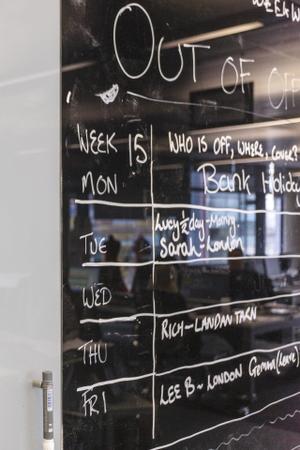 WEEK
OUT OF OFF
WEEK 15 WHO IS OFF, WHERE, COVER?
MON Bank Holiday
Lucy ½ day - Morning.
TUE Sarah - London
WED
RICH - LANDAN TARN
THU
FRI LEE B ~ LONDON Gemma (Leave)